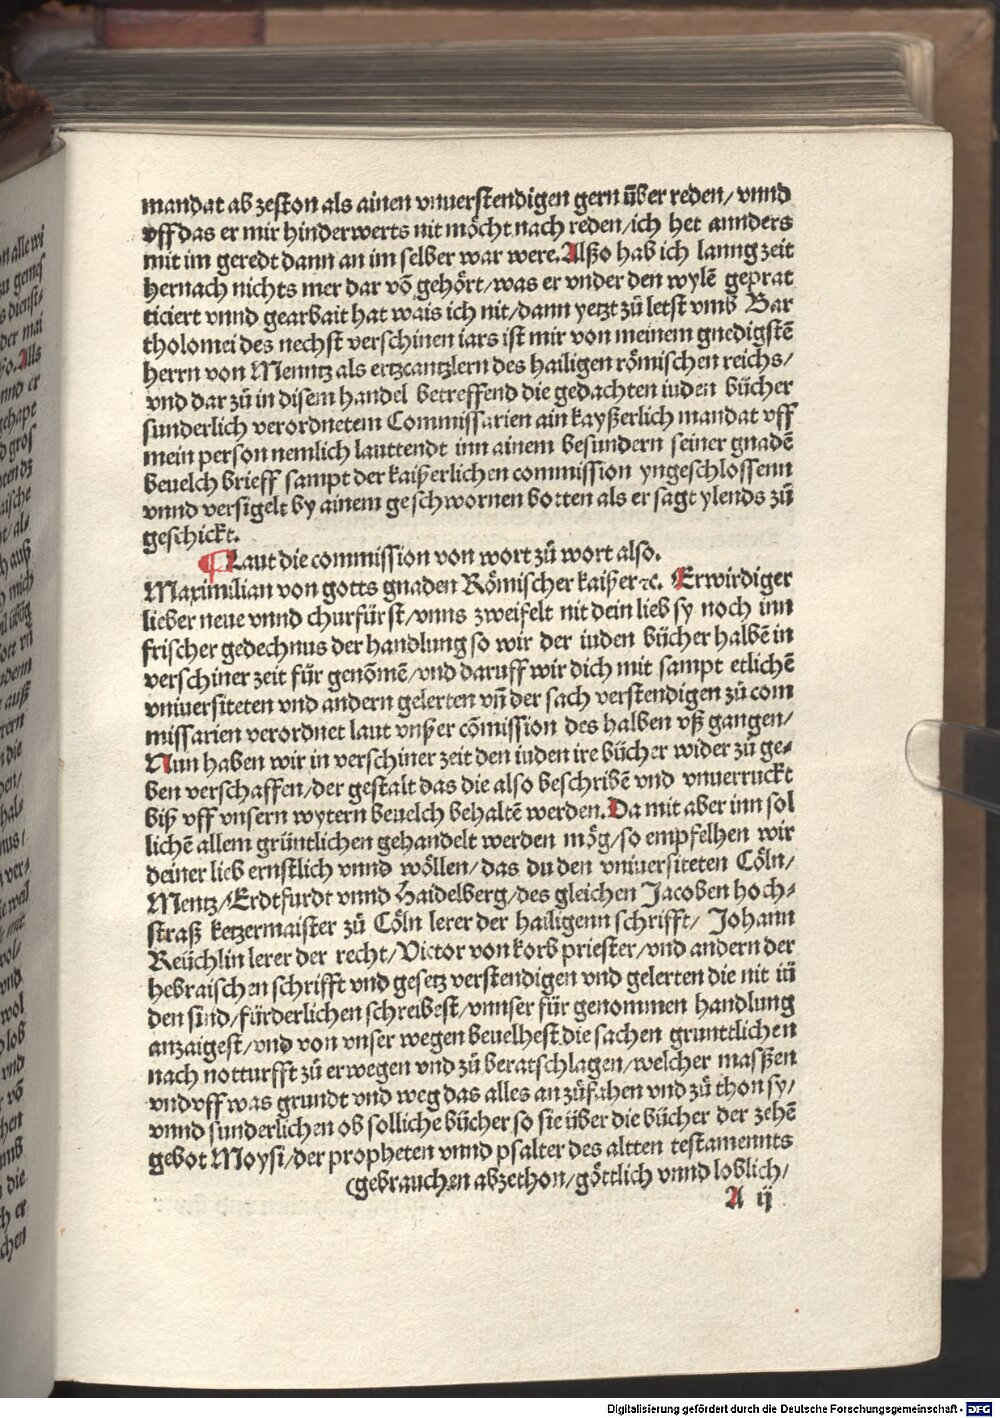 mandat ab zeston als ainen vnuerstendigen gern ūber reden/ vnnd
vff das er mir hinderwerts nit möcht nach reden/ich het annders
mit im geredt dann an im selber war were. Alßo hab ich lanng zeit
hernach nichts mer dar vō gehört/was er vnder den wylē geprat
ticiert vnnd gearbait hat wais ich nit/dann yetzt zů letst vmb Bar
tholomei des nechst verschinen iars ist mir von meinem gnedigstē
herrn von Menntz als ertzcantzlern des hailigen römischen reichs/
vnd dar zů in disem handel betreffend die gedachten iuden bücher
sunderlich verordnetem Commissarien ain kayßerlich mandat vff
mein person nemlich lauttendt inn ainem besundern seiner gnadē
beuelch brieff sampt der kaißerlichen commission yngeschlossenn
vnnd versigelt by ainem geschwornen botten als er sagt ylends zů
geschickt.
¶ Laut die commission von wort zů wort also.
Maximilian von gotts gnaden Römischer kaißer ⁊c. Erwirdiger
lieber neue vnnd churfürst/vnns zweifelt nit dein lieb sy noch inn
frischer gedechnus der handlung so wir der iuden bücher halbē in
verschiner zeit für genōmē/vnd daruff wir dich mit sampt etlichē
vniuersiteten vnd andern gelerten vn̄ der sach verstendigen zů com
missarien verordnet laut vnßer cōmission des halben vß gangen/
Nun haben wir in verschiner zeit den iuden ire bücher wider zů ge⸗
ben verschaffen/der gestalt das die also beschribē vnd vnuerruckt
biß vff vnsern wytern beuelch behaltē werden. Da mit aber inn sol
lichē allem grüntlichen gehandelt werden mög/so empfelhen wir
deiner lieb ernstlich vnnd wöllen/das du den vniuersiteten Cöln/
Mentz/Erdtfurdt vnnd Haidelberg/des gleichen Jacoben hoch⸗
straß ketzermaister zů Cöln lerer der hailigenn schrifft/ Johann
Reüchlin lerer der recht/Victor von korb priester/vnd andern der
hebraischen schrifft vnd gesetz verstendigen vnd gelerten die nit iü
den sind/fürderlichen schreibest/vnnser für genommen handlung
anzaigest/vnd von vnser wegen beuelhest die sachen grunttlichen
nach notturfft zů erwegen vnd zů beratschlagen/welcher masßen
vnd vff was grundt vnd weg das alles an zůfahen vnd zů thon sy/
vnnd sunderlichen ob solliche bücher so sie über die bücher der zehē
gebot Moysi/der propheten vnnd psalter des altten testamennts
(gebrauchen abzethon/göttlich vnnd loblich/
A ij
Digitalisierung gefördert durch die Deutsche Forschungsgemeinschaft - DFG